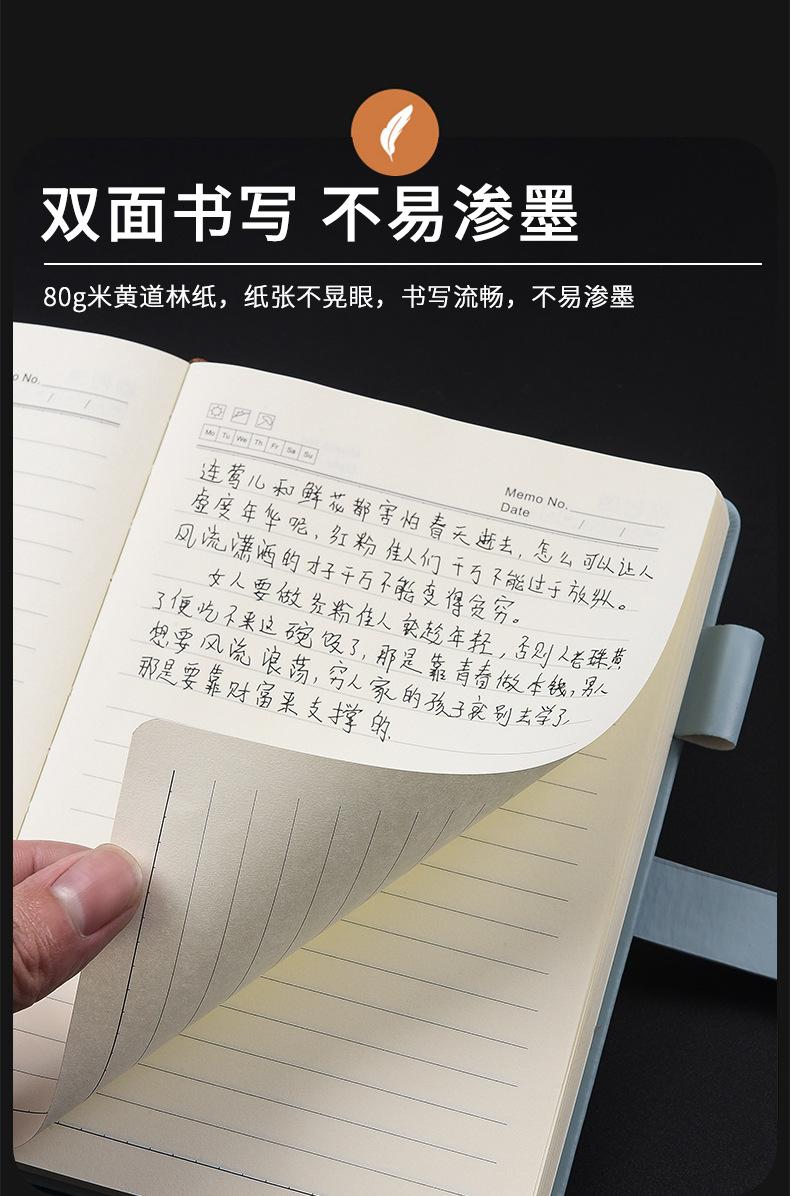 双面书写 不易渗墨
80g米黄道林纸，纸张不晃眼，书写流畅，不易渗墨
o No.
/ /
Mo Tu We Th Fr Sa Su
Memo No.
Date / /
连莺儿和鲜花都害怕春天逝去，怎么可以让人
虚度年华呢，红粉佳人们千万不能过于放纵。
风流潇洒的才子千万不能变得贫穷。
女人要做红粉佳人就趁年轻，否则人老珠黄
了便吃不来这碗饭了，那是靠青春做本钱，男人
想要风流浪荡，穷人家的孩子就别去学了
那是要靠财富来支撑的.